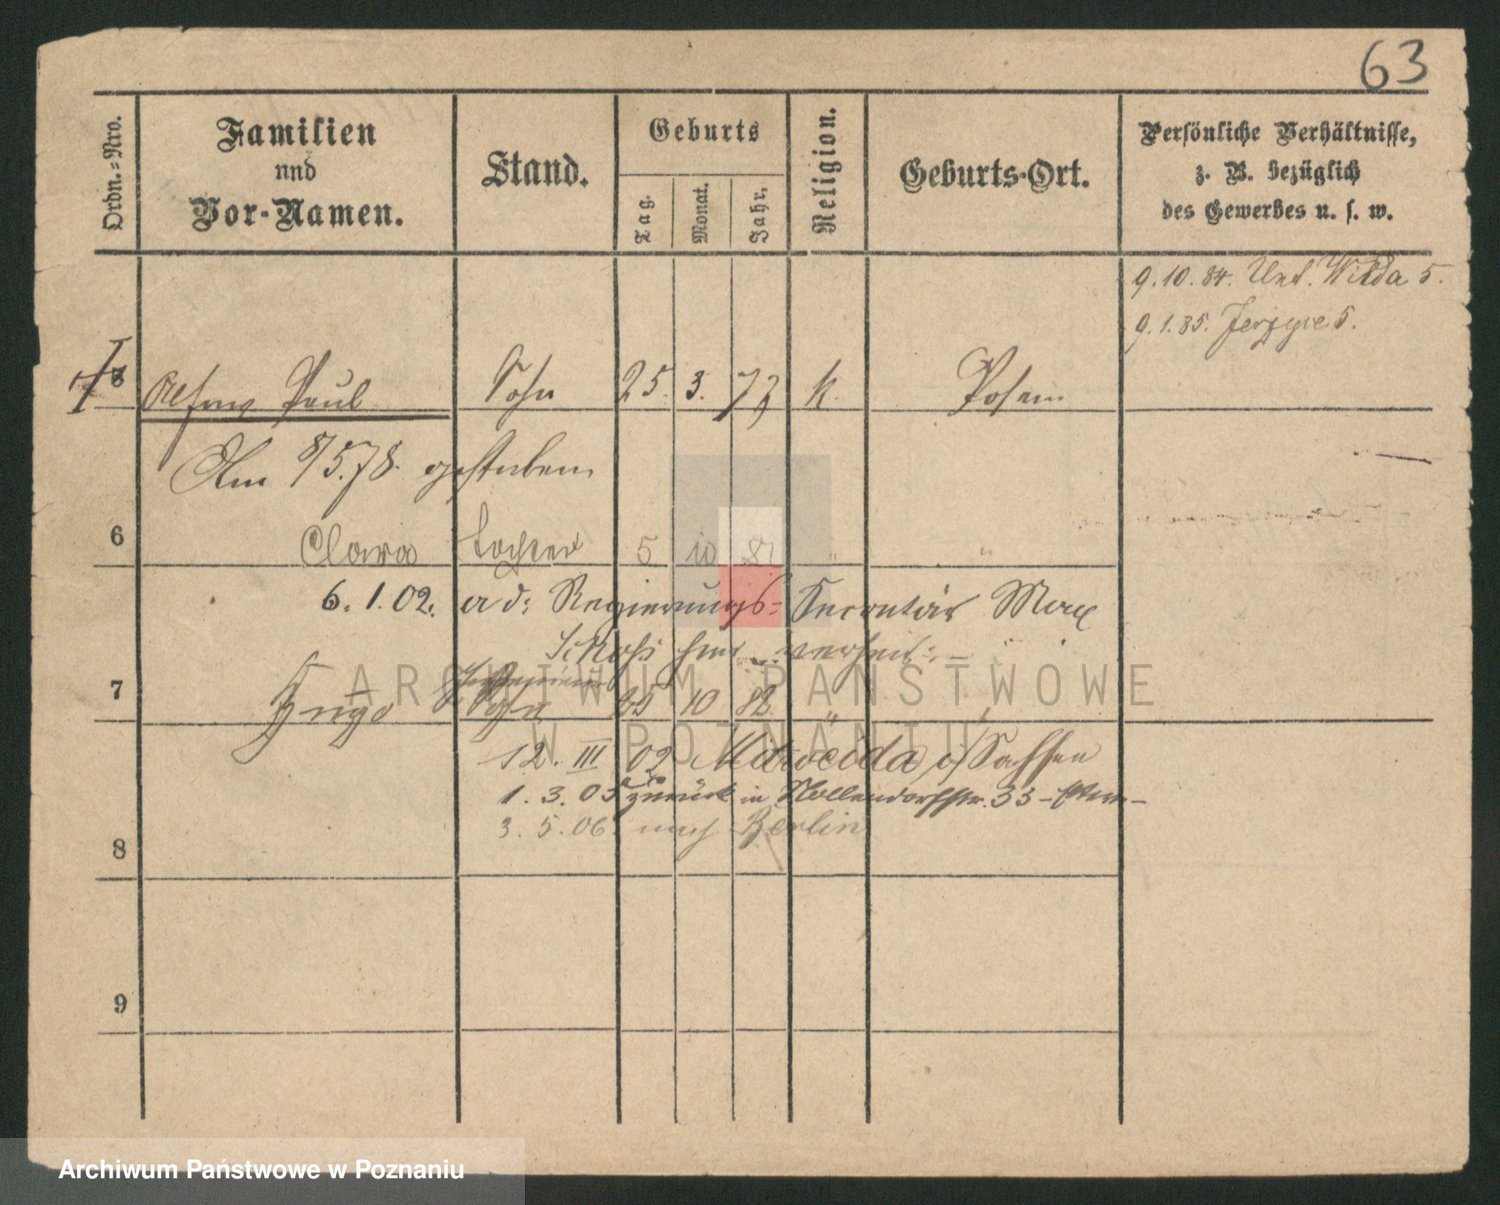 63
Ordn.-Nro.
Familien
und
Vor-Namen.
Stand.
Geburts
Tag.
Monat.
Jahr.
Religion.
Geburts-Ort.
Persönliche Verhältnisse,
z. B. bezüglich
des Gewerbes u. s. w.
9.10.84. Unt. Wilda 5.
9.1.85. Jerzyce 5.
Paul Sohn 25. 3. k. Posen
Am 8/5.78. gestorben
6 Clara Tochter 5 10 81 " "
6.1.02. a d: Regierungs-Secretär Max
verheir:
7 Hugo Sohn 10 82 "
12. III 02 Mitweida i/Sachsen
1.3.05 zurück in Nollendorfstr. 33
3.5.06. nach Berlin
8
9
ARCHIWUM PAŃSTWOWE
W POZNANIU
Archiwum Państwowe w Poznaniu